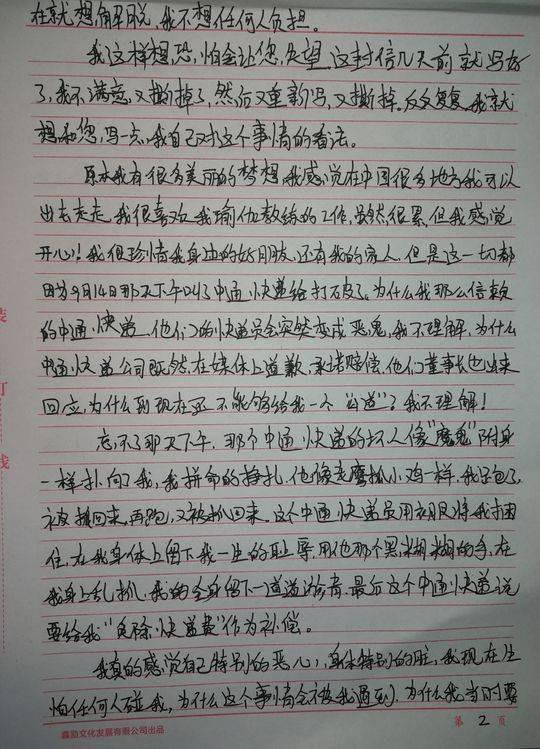 在就想解脱，我不想任何人负担。
我这样想恐怕会让您失望，这封信几天前就写好
了，我不满意，又撕掉了，然后又重新写，又撕掉。反反复复，我就
想和您，写一点，我自己对这个事情的看法。
原本我有很多美丽的梦想，我感觉在中国很多地方我可以
出去走走，我很喜欢我瑜伽教练的工作，虽然很累，但我感觉
开心！我很珍惜我身边的好朋友，还有我的家人，但是这一切都
因为9月14日那天下午叫了中通快递给打破了。为什么我那么信赖
的中通快递，他们的快递员会突然变成恶鬼，我不理解，为什么
中通快递公司既然在媒体上道歉，承诺赔偿，他们董事长也出来
回应，为什么到现在还不能够给我一个"公道"？我不理解！
忘不了那天下午，那个中通快递的坏人像"魔鬼"附身
一样扑向了我，我拼命的挣扎，他像老鹰抓小鸡一样，我跑了，
被抓回来，再跑，又被抓回来，这个中通快递员用衣服将我捆
住，在我身体上留下我一生的耻辱，用他那个黑糊糊的手，在
我身上乱抓，我的全身留下一道道淤青，最后这个中通快递说
要给我"免除快递费"作为补偿。
我真的感觉自己特别的恶心，身体特别的脏，我现在怕
怕任何人碰我，为什么这个事情会被我遇到，为什么我当时要
鑫励文化发展有限公司出品
第 2 页
装
订
线